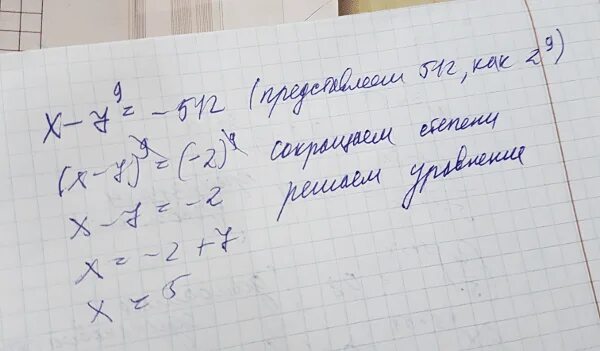 x - 7⁹ = -512 (представляем 512, как 2⁹)
(x-7)⁹ = (-2)⁹ сокращаем степени
x - 7 = -2 решаем уравнение
x = -2 + 7
x = 5